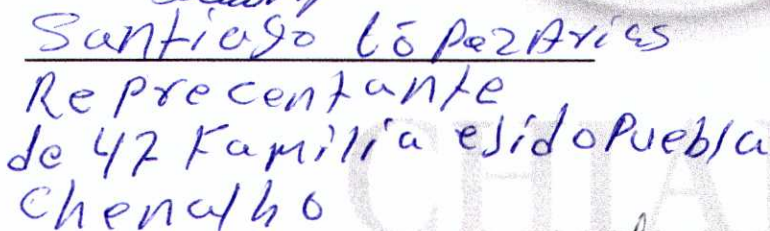 Santiago López Arias
Reprecentante
de 47 Familia ejido Puebla
Chenalhó
CHIA